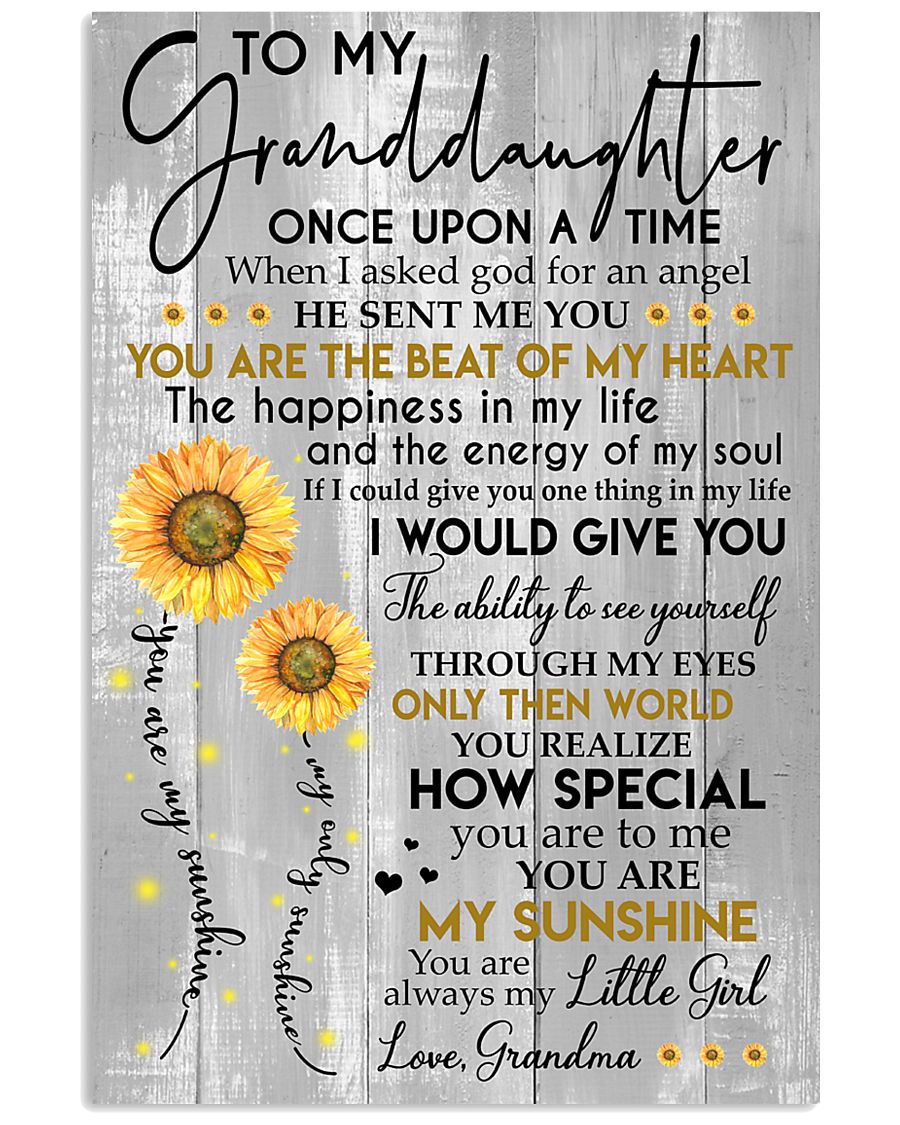 TO MY
Granddaughter
ONCE UPON A TIME
When I asked god for an angel
HE SENT ME YOU
YOU ARE THE BEAT OF MY HEART
The happiness in my life
and the energy of my soul
If I could give you one thing in my life
I WOULD GIVE YOU
The ability to see yourself
THROUGH MY EYES
ONLY THEN WORLD
YOU REALIZE
HOW SPECIAL
you are to me
YOU ARE
MY SUNSHINE
You are
always my Little Girl
Love, Grandma
you are my sunshine
my only sunshine